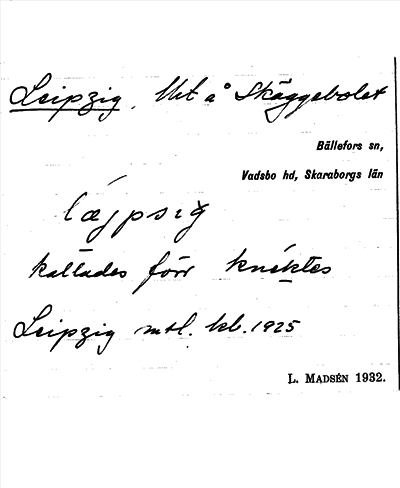 Leipzig, Utt å Skäggebolet
Bällefors sn,
Vadsbo hd, Skaraborgs län
læjpsig
kallades förr knektes
Leipzig mtl. kb. 1925
L. MADSÉN 1932.